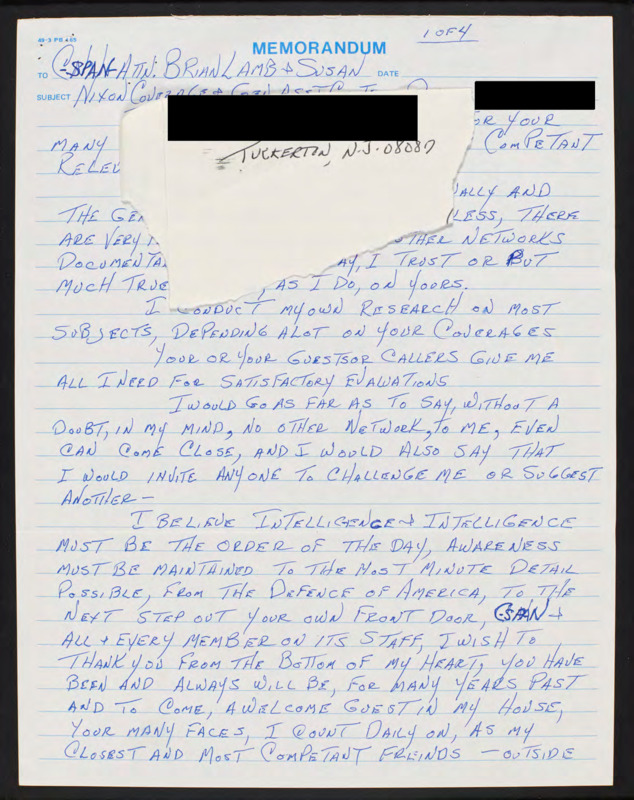 49-3 PR. 65
1 OF 4
MEMORANDUM
TO C-SPAN-ATTN: BRIAN LAMB & SUSAN DATE
SUBJECT NIXON COVERAGE &
TUCKERTON, N.J. 08087
OR YOUR
MANY COMPETANT
RELEV
ALLY AND
THE GEN LESS, THERE
ARE VERY OTHER NETWORKS
DOCUMENTA AY, I TRUST OR PUT
MUCH TRUC , AS I DO, ON YOURS.
I CONDUCT MY OWN RESEARCH ON MOST
SUBJECTS, DEPENDING ALOT ON YOUR COVERAGES
YOUR OR YOUR GUESTS OR CALLERS GIVE ME
ALL I NEED FOR SATISFACTORY EVALUATIONS
I WOULD GO AS FAR AS TO SAY, WITHOUT A
DOUBT, IN MY MIND, NO OTHER NETWORK, TO ME, EVEN
CAN COME CLOSE, AND I WOULD ALSO SAY THAT
I WOULD INVITE ANYONE TO CHALLENGE ME OR SUGGEST
ANOTHER —
I BELIEVE INTELLIGENCE & INTELLIGENCE
MUST BE THE ORDER OF THE DAY, AWARENESS
MUST BE MAINTAINED TO THE MOST MINUTE DETAIL
POSSIBLE, FROM THE DEFENCE OF AMERICA, TO THE
NEXT STEP OUT YOUR OWN FRONT DOOR, C-SPAN &
ALL & EVERY MEMBER ON ITS STAFF, I WISH TO
THANK YOU FROM THE BOTTOM OF MY HEART, YOU HAVE
BEEN AND ALWAYS WILL BE, FOR MANY YEARS PAST
AND TO COME, A WELCOME GUEST IN MY HOUSE,
YOUR MANY FACES, I COUNT DAILY ON, AS MY
CLOSEST AND MOST COMPETANT FREINDS — OUTSIDE